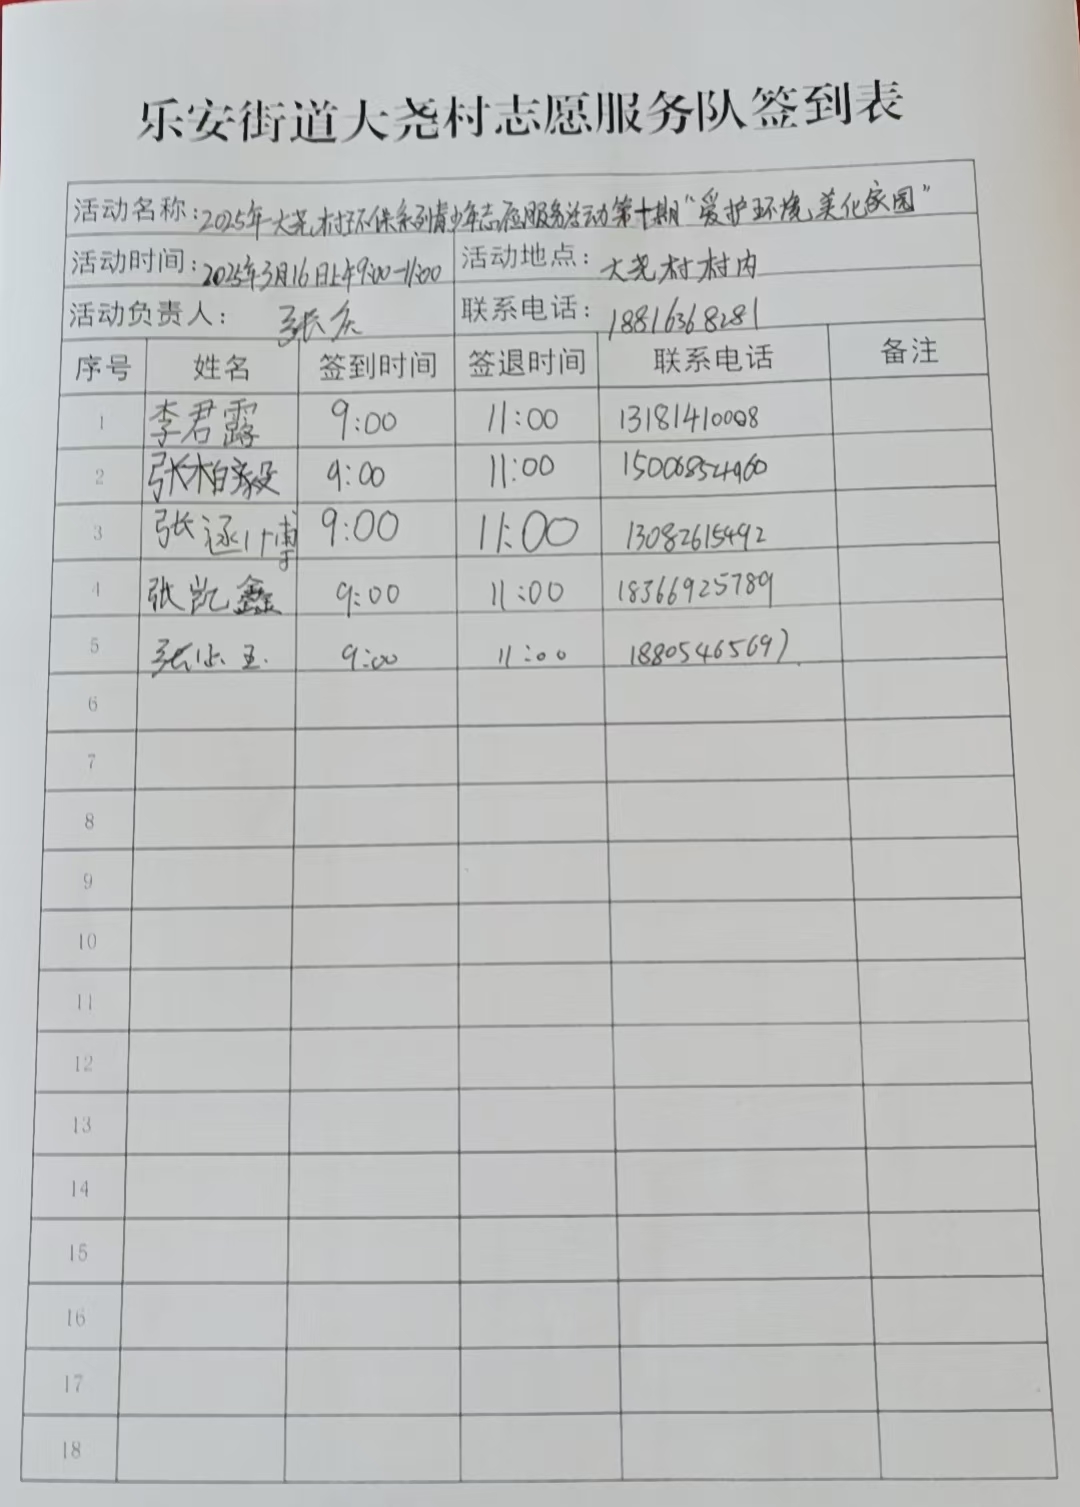 乐安街道大尧村志愿服务队签到表
活动名称:2025年大尧村环保系列青少年志愿服务活动第十期"爱护环境,美化家园"
活动时间:2025年3月16日上午9:00-11:00 活动地点:大尧村村内
活动负责人: 联系电话:18816368281
序号 姓名 签到时间 签退时间 联系电话 备注
1 李君露 9:00 11:00 13181410008
2 张柏毅 9:00 11:00 15006854960
3 张逐博 9:00 11:00 13082615492
4 张凯鑫 9:00 11:00 18366925789
5 9:00 11:00 18805465697
6
7
8
9
10
11
12
13
14
15
16
17
18